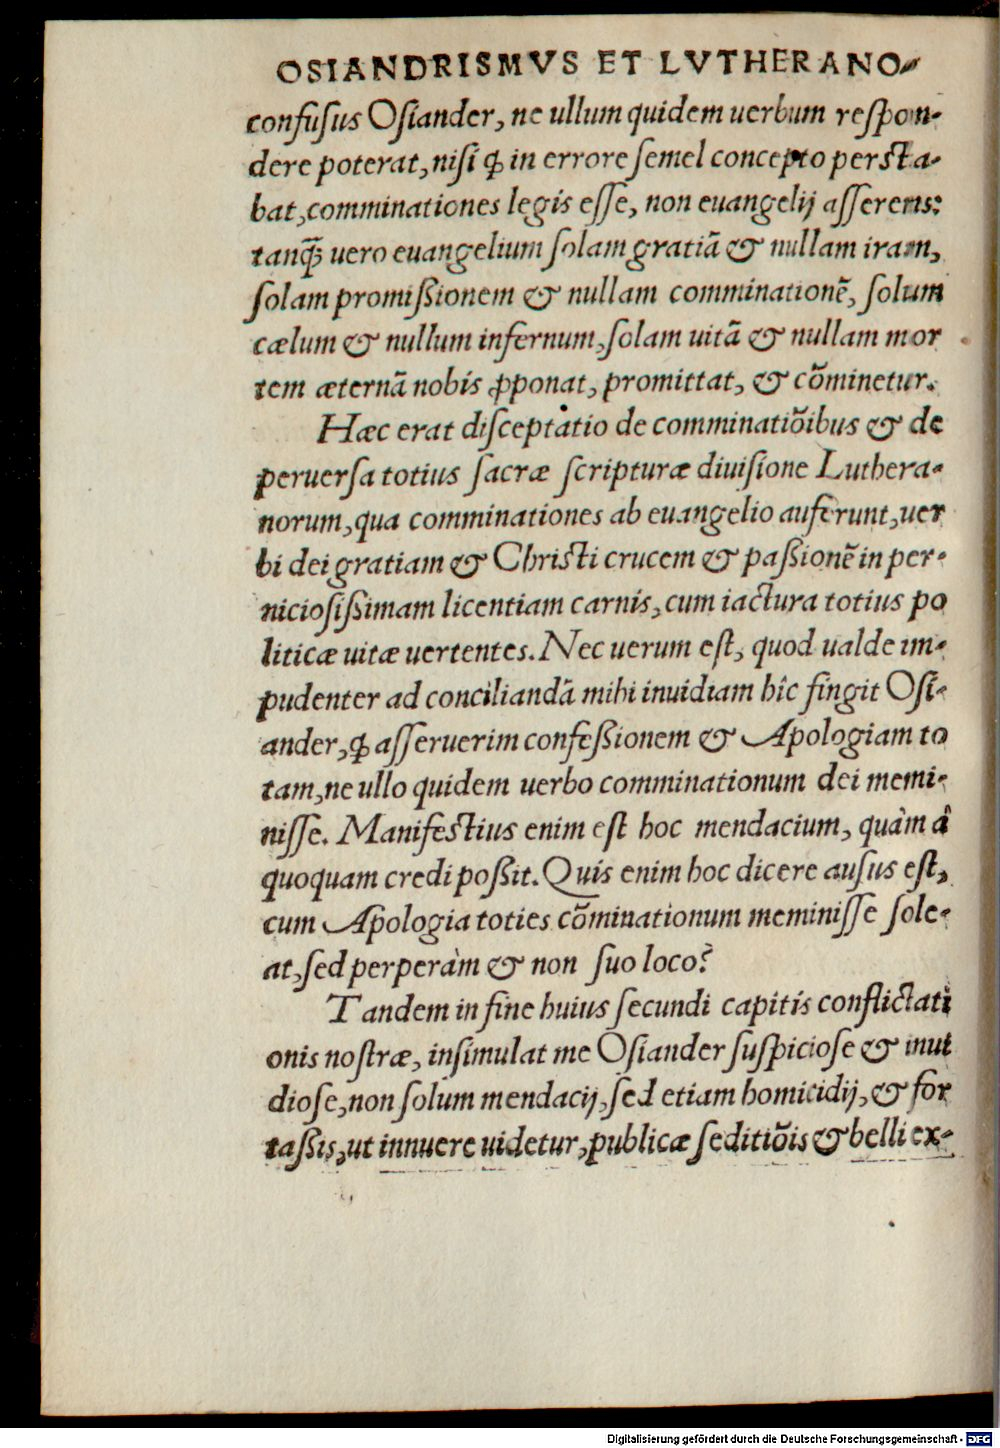 OSIANDRISMVS ET LVTHERANO-
confusus Osiander, ne ullum quidem uerbum respon-
dere poterat, nisi ꝙ in errore semel concepto persta-
bat, comminationes legis esse, non euangelij asserens:
tanꝙ̃ uero euangelium solam gratiã & nullam iram,
solam promißionem & nullam comminationẽ, solum
cælum & nullum infernum, solam uitã & nullam mor
tem æternã nobis ꝓponat, promittat, & cõminetur.
Hæc erat disceptatio de comminatiõibus & de
peruersa totius sacræ scripturæ diuisione Luthera-
norum, qua comminationes ab euangelio auferunt, uer
bi dei gratiam & Christi crucem & paßionẽ in per-
niciosißimam licentiam carnis, cum iactura totius po
liticæ uitæ uertentes. Nec uerum est, quod ualde im-
pudenter ad conciliandã mihi inuidiam hîc fingit Osi-
ander, ꝙ asseruerim confeßionem & Apologiam to
tam, ne ullo quidem uerbo comminationum dei memi-
nisse. Manifestius enim est hoc mendacium, quàm à
quoquam credi poßit. Quis enim hoc dicere ausus est,
cum Apologia toties cõminationum meminisse sole-
at, sed perperàm & non suo loco?
Tandem in fine huius secundi capitis conflictati
onis nostræ, insimulat me Osiander suspiciose & inui
diose, non solum mendacij, sed etiam homicidij, & for
taßis, ut innuere uidetur, publicæ seditiõis & belli ex-
Digitalisierung gefördert durch die Deutsche Forschungsgemeinschaft - DFG